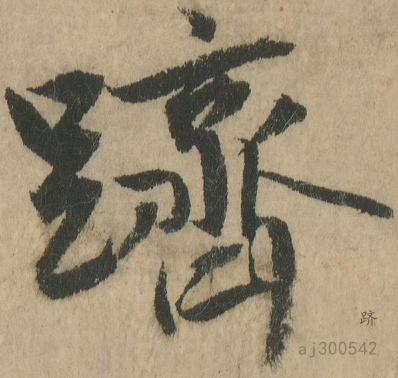 躋
跻
aj300542